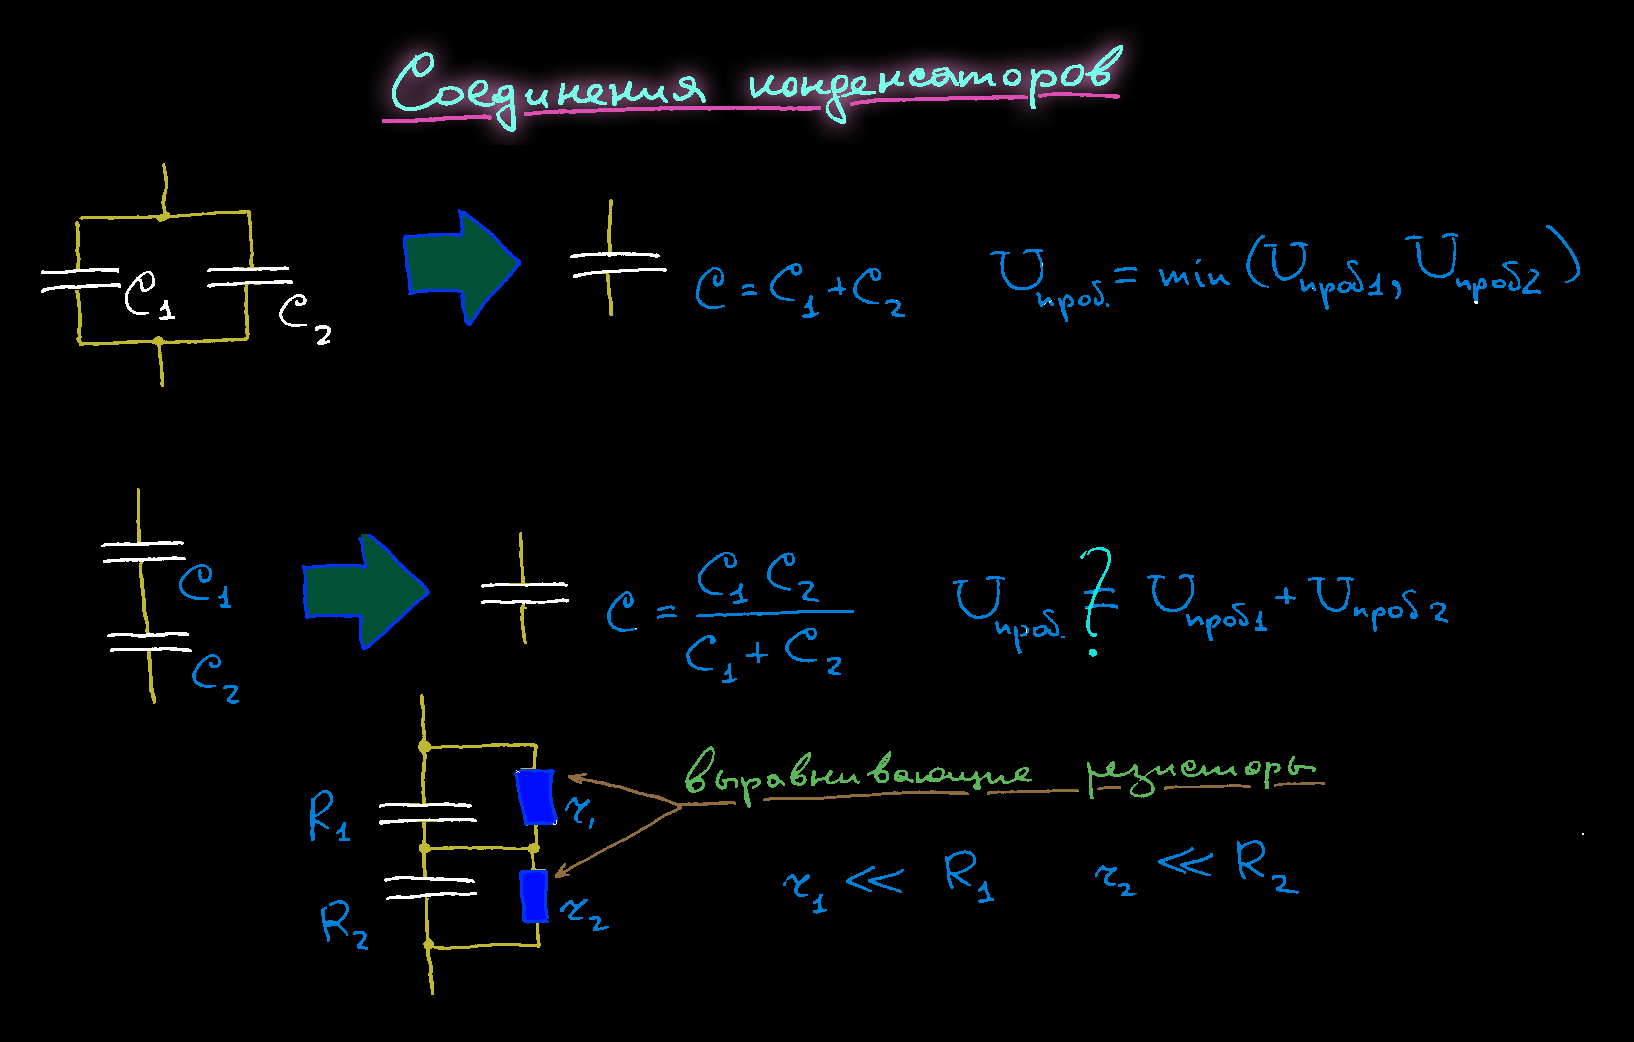 Соединения конденсаторов
C₁ C₂ C = C₁ + C₂ Uпроб. = min (Uпроб1, Uпроб2)
C₁ C₂ C = C₁ C₂ / C₁ + C₂ Uпроб. ≠ ? Uпроб1 + Uпроб2
выравнивающие резисторы
R₁ r₁
R₂ r₂
r₁ << R₁ r₂ << R₂